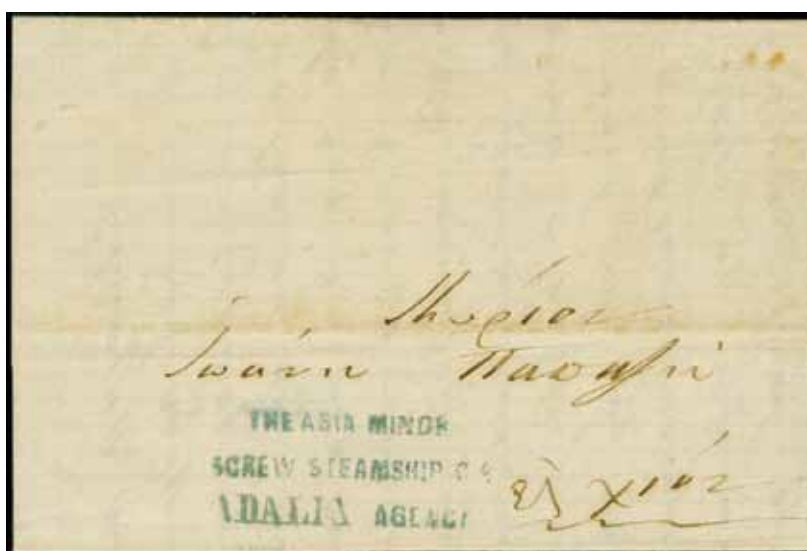 Κύριον
Ἰωάνη
THE ASIA MINOR
SCREW STEAMSHIP Co
ADALIA AGENCY
εἰς Χίον